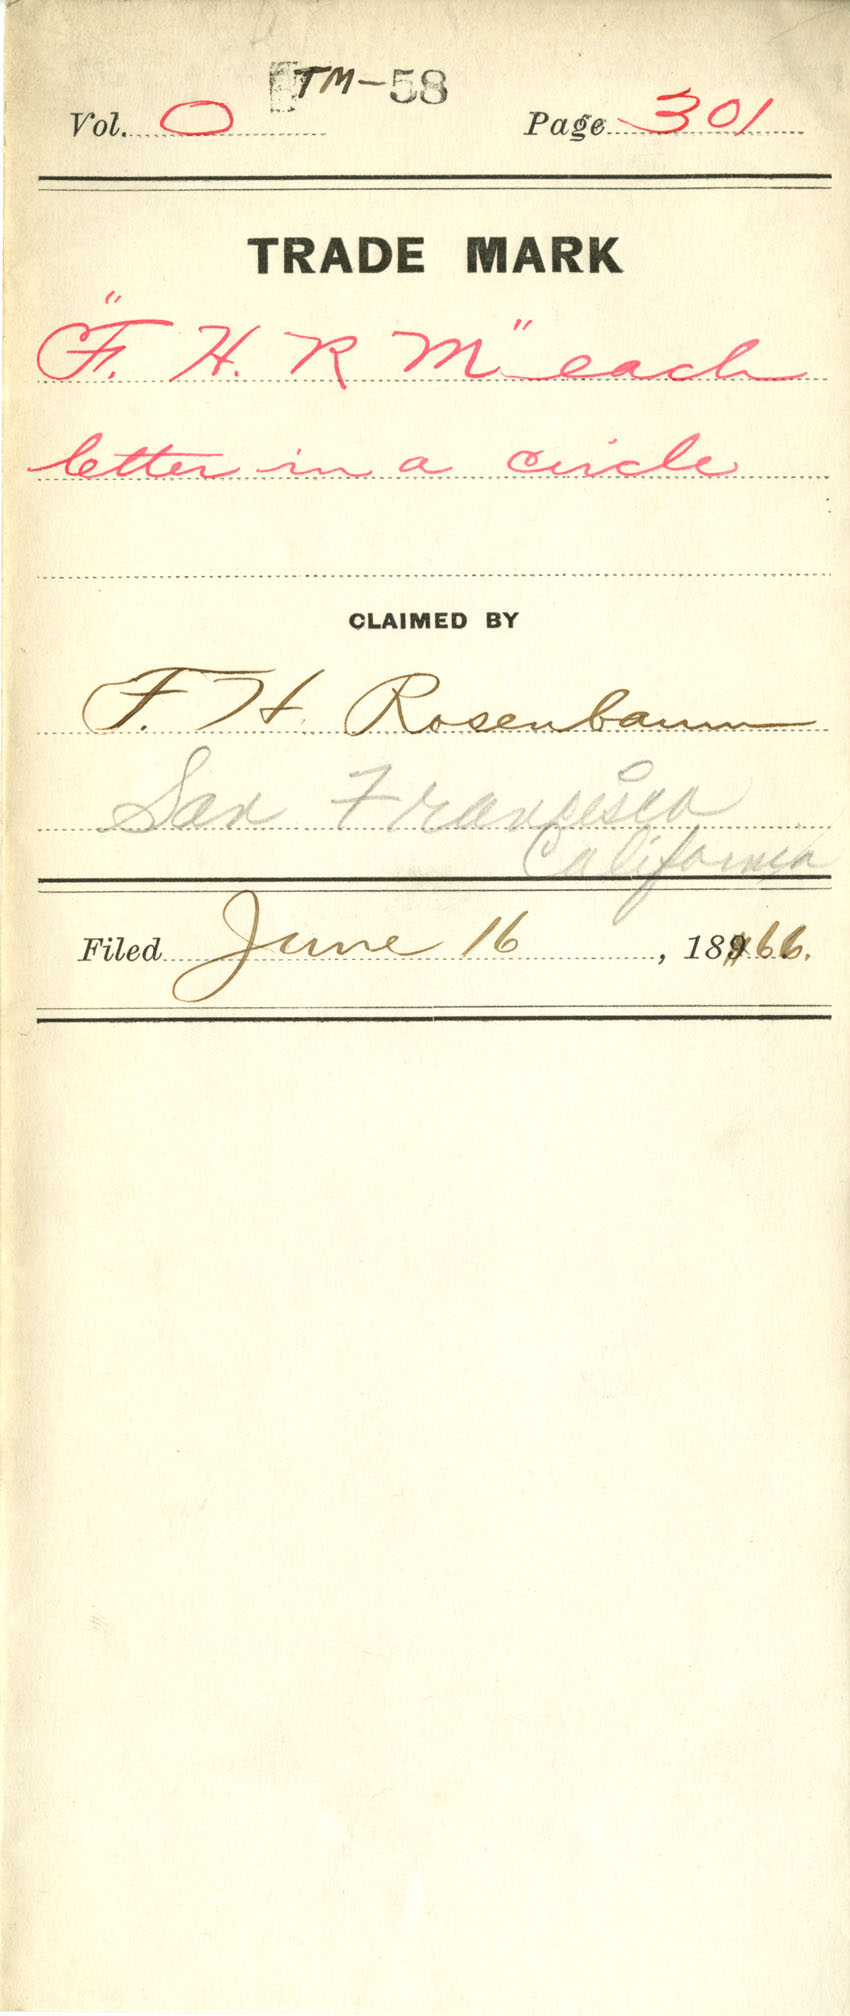 TM-58
Vol. 0 Page 301
TRADE MARK
"F. H. R M" each
letter in a circle
CLAIMED BY
F. H. Rosenbaum
San Francisco
California
Filed June 16, 18966.